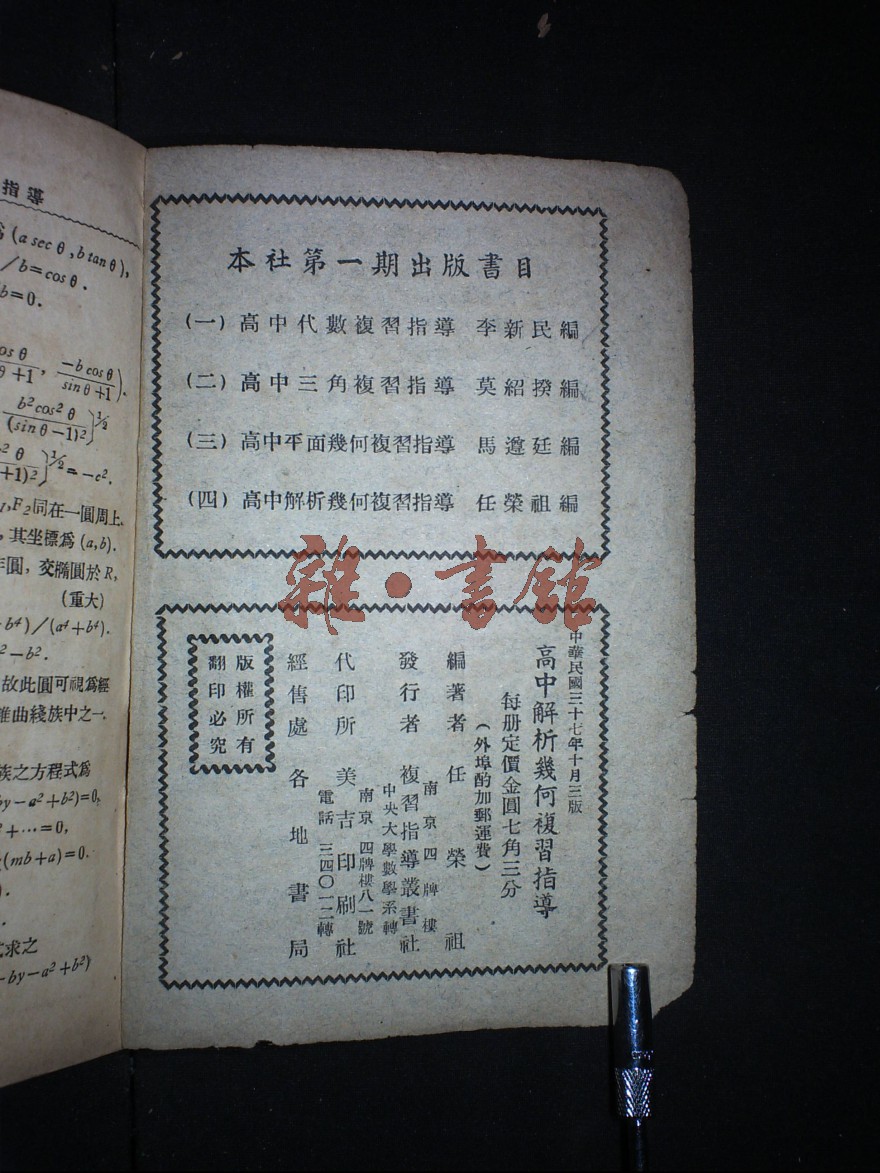 指導
(a sec θ, b tan θ),
/b=cos θ.
b=0.
cos θ
θ+1, −b cos θ / sin θ+1).
b² cos² θ / (sin θ−1)²}^½
² θ / +1)²}^½=−c².
,F₂同在一圓周上.
,其坐標爲 (a,b).
圓,交橢圓於 R,
(重大)
b⁴)/(a⁴+b⁴).
²−b².
故此圓可視爲經
錐曲綫族中之一.
族之方程式爲
by−a²+b²)=0,
²+⋯=0,
(mb+a)=0.
求之
−by−a²+b²)
本社第一期出版書目
(一)高中代數複習指導 李新民編
(二)高中三角複習指導 莫紹揆編
(三)高中平面幾何複習指導 馬遵廷編
(四)高中解析幾何複習指導 任榮祖編
雜·書館
中華民國三十七年十月三版
高中解析幾何複習指導
每册定價金圓七角三分
(外埠酌加郵運費)
編著者 任榮祖
南京四牌樓
發行者 複習指導叢書社
中央大學數學系轉
南京四牌樓八一號
代印所 美吉印刷社
電話 三四〇一二轉
經售處 各地書局
版權所有
翻印必究